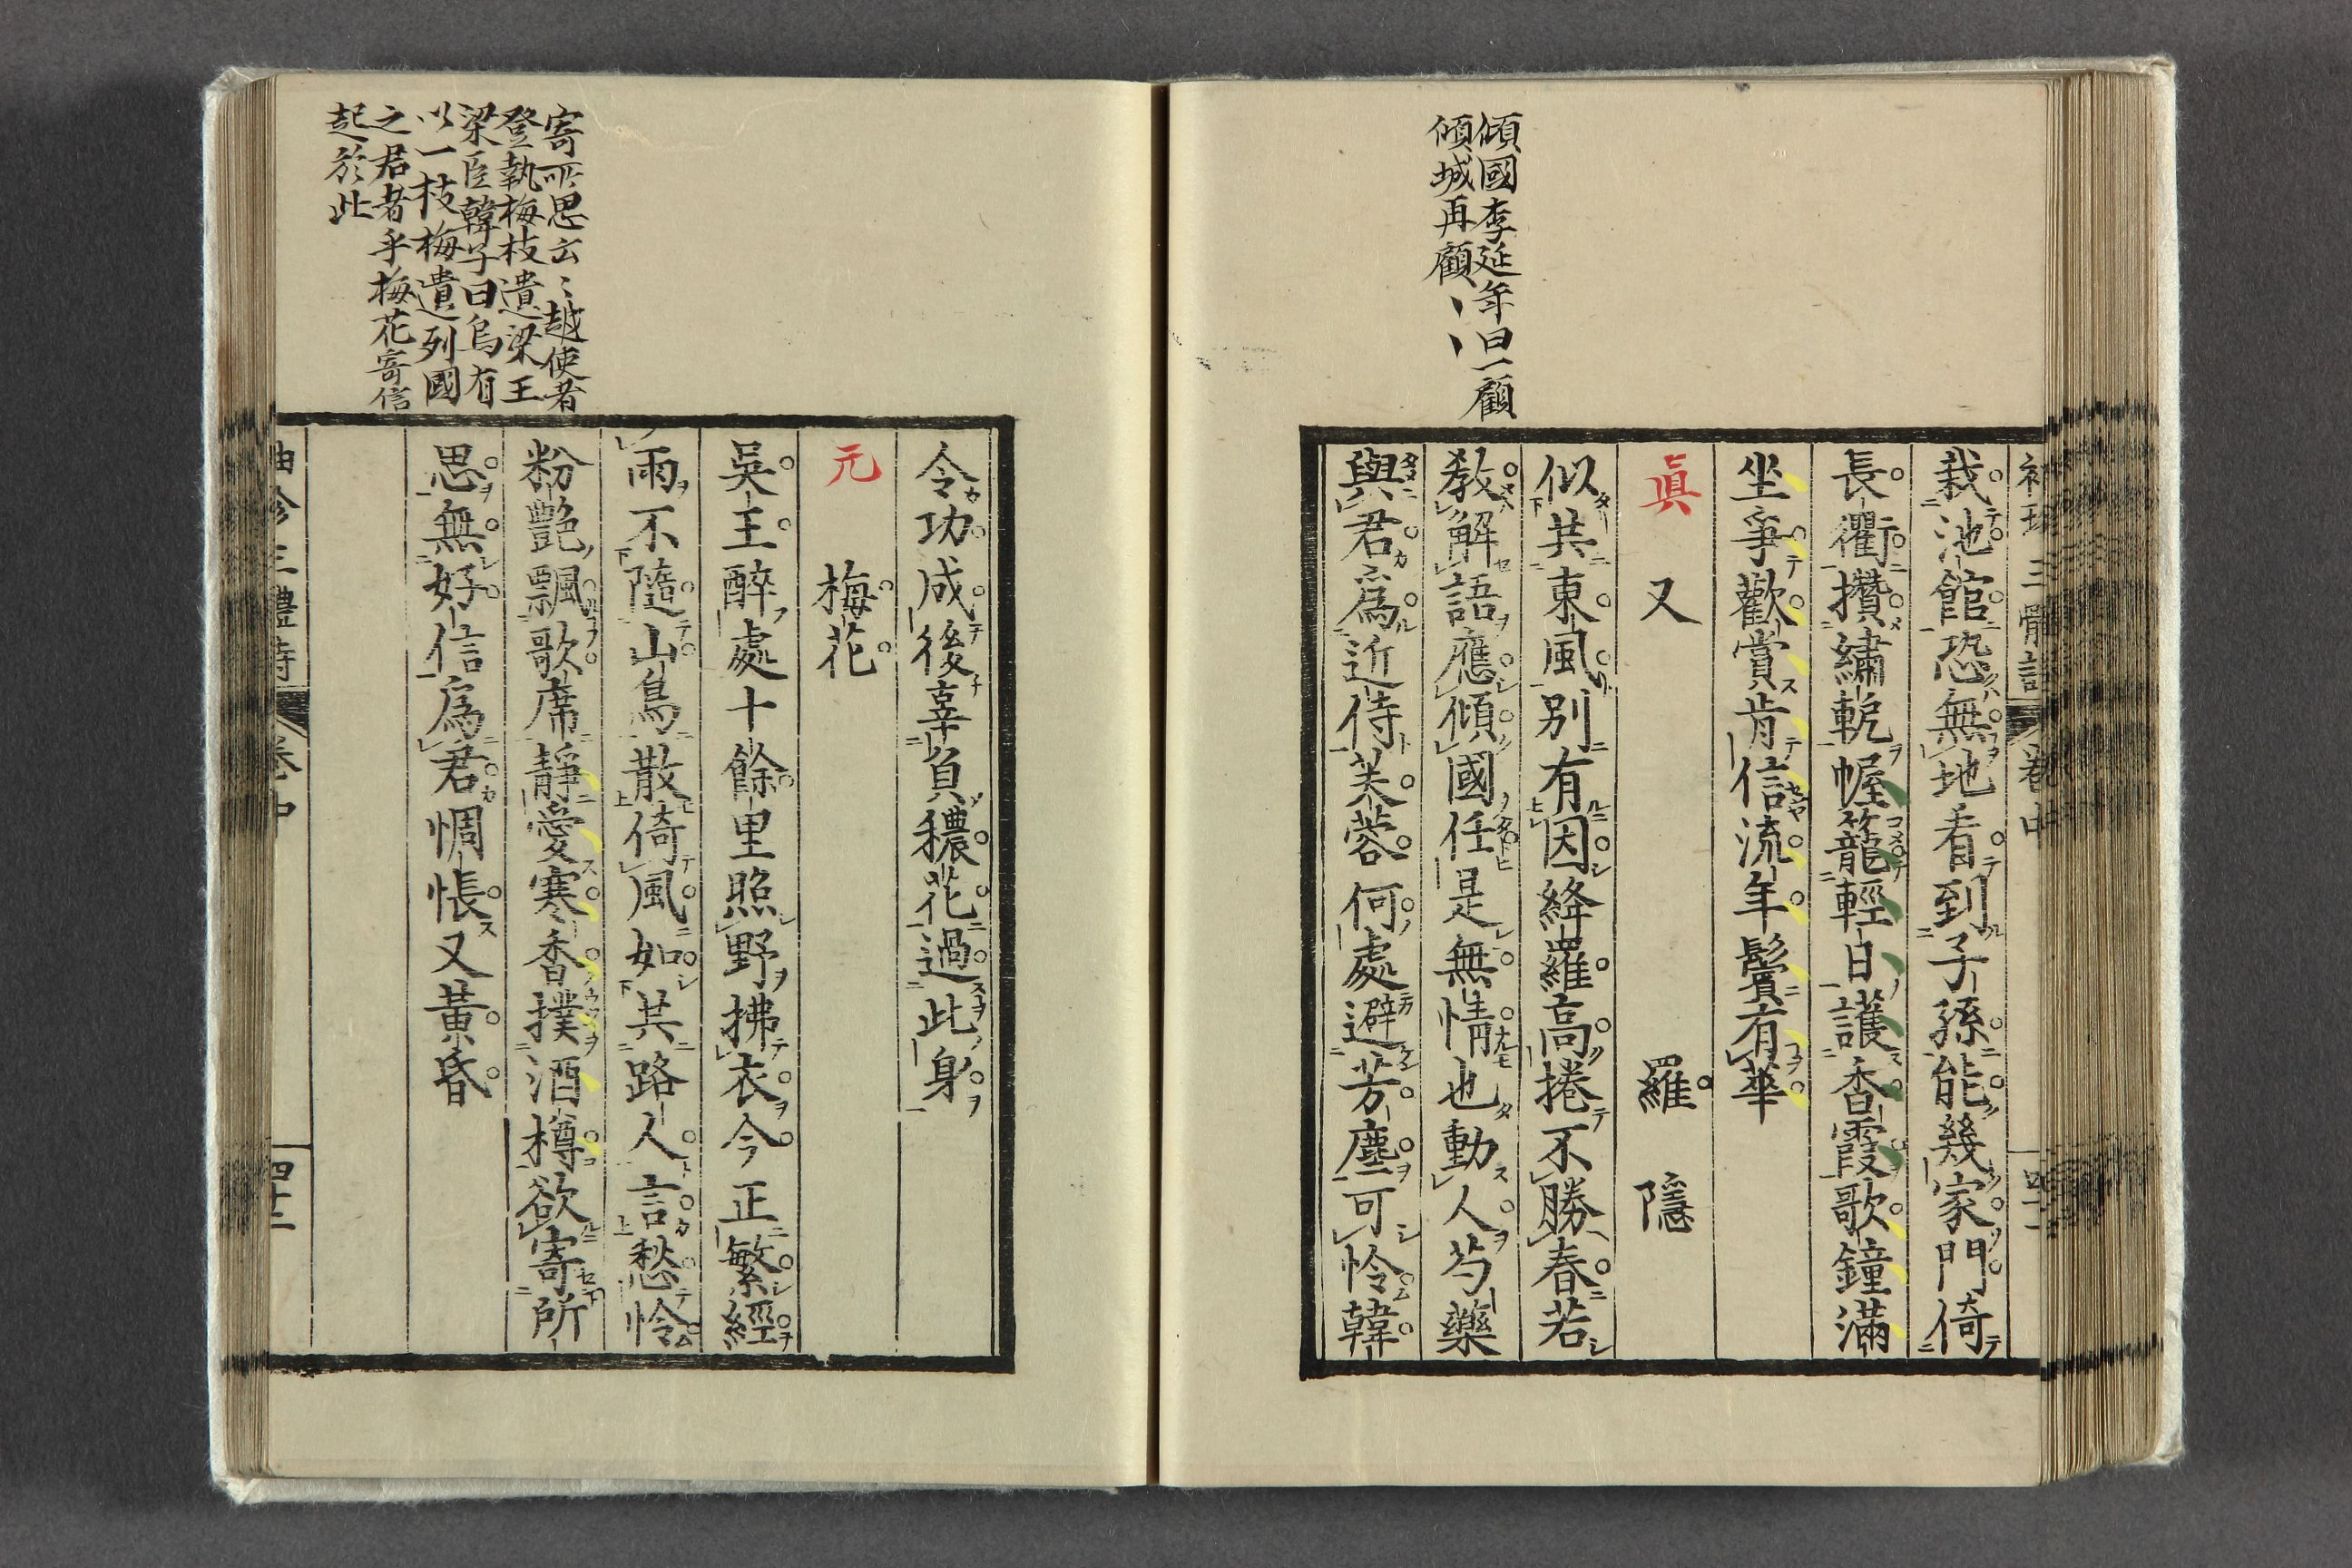 傾國李延年曰一顧
傾城再顧、、
栽池館恐無地看到子孫能幾家門倚
長衢攢繡軛幄籠輕日護香霞歌鐘滿
坐爭歡賞肯信流年鬢有華
眞 又 羅隱
似共東風別有因絳羅高捲不勝春若
教解語應傾國任是無情也動人芍藥
與君爲近侍芙蓉何處避芳塵可怜韓
寄所思云〻越使者
登執梅枝遺梁王
梁臣韓子曰烏有
以一枝梅遺列國
之君者乎梅花寄信
起於此
令功成後辜負穠花過此身
元 梅花
吳王醉處十餘里照野拂衣今正繁經
雨不隨山鳥散倚風如共路人言愁怜
粉艷飄歌席靜愛寒香撲酒樽欲寄所
思無好信爲君惆悵又黃昏
袖珍三體詩
卷中
四十二